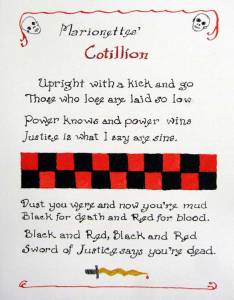 Marionettes'
Cotillion
Upright with a kick and go
Those who lose are laid so low.
Power knows and power wins
Justice is what I say are sins.
Dust you were and now you're mud
Black for death and Red for blood.
Black and Red, Black and Red
Sword of Justice says you're dead.